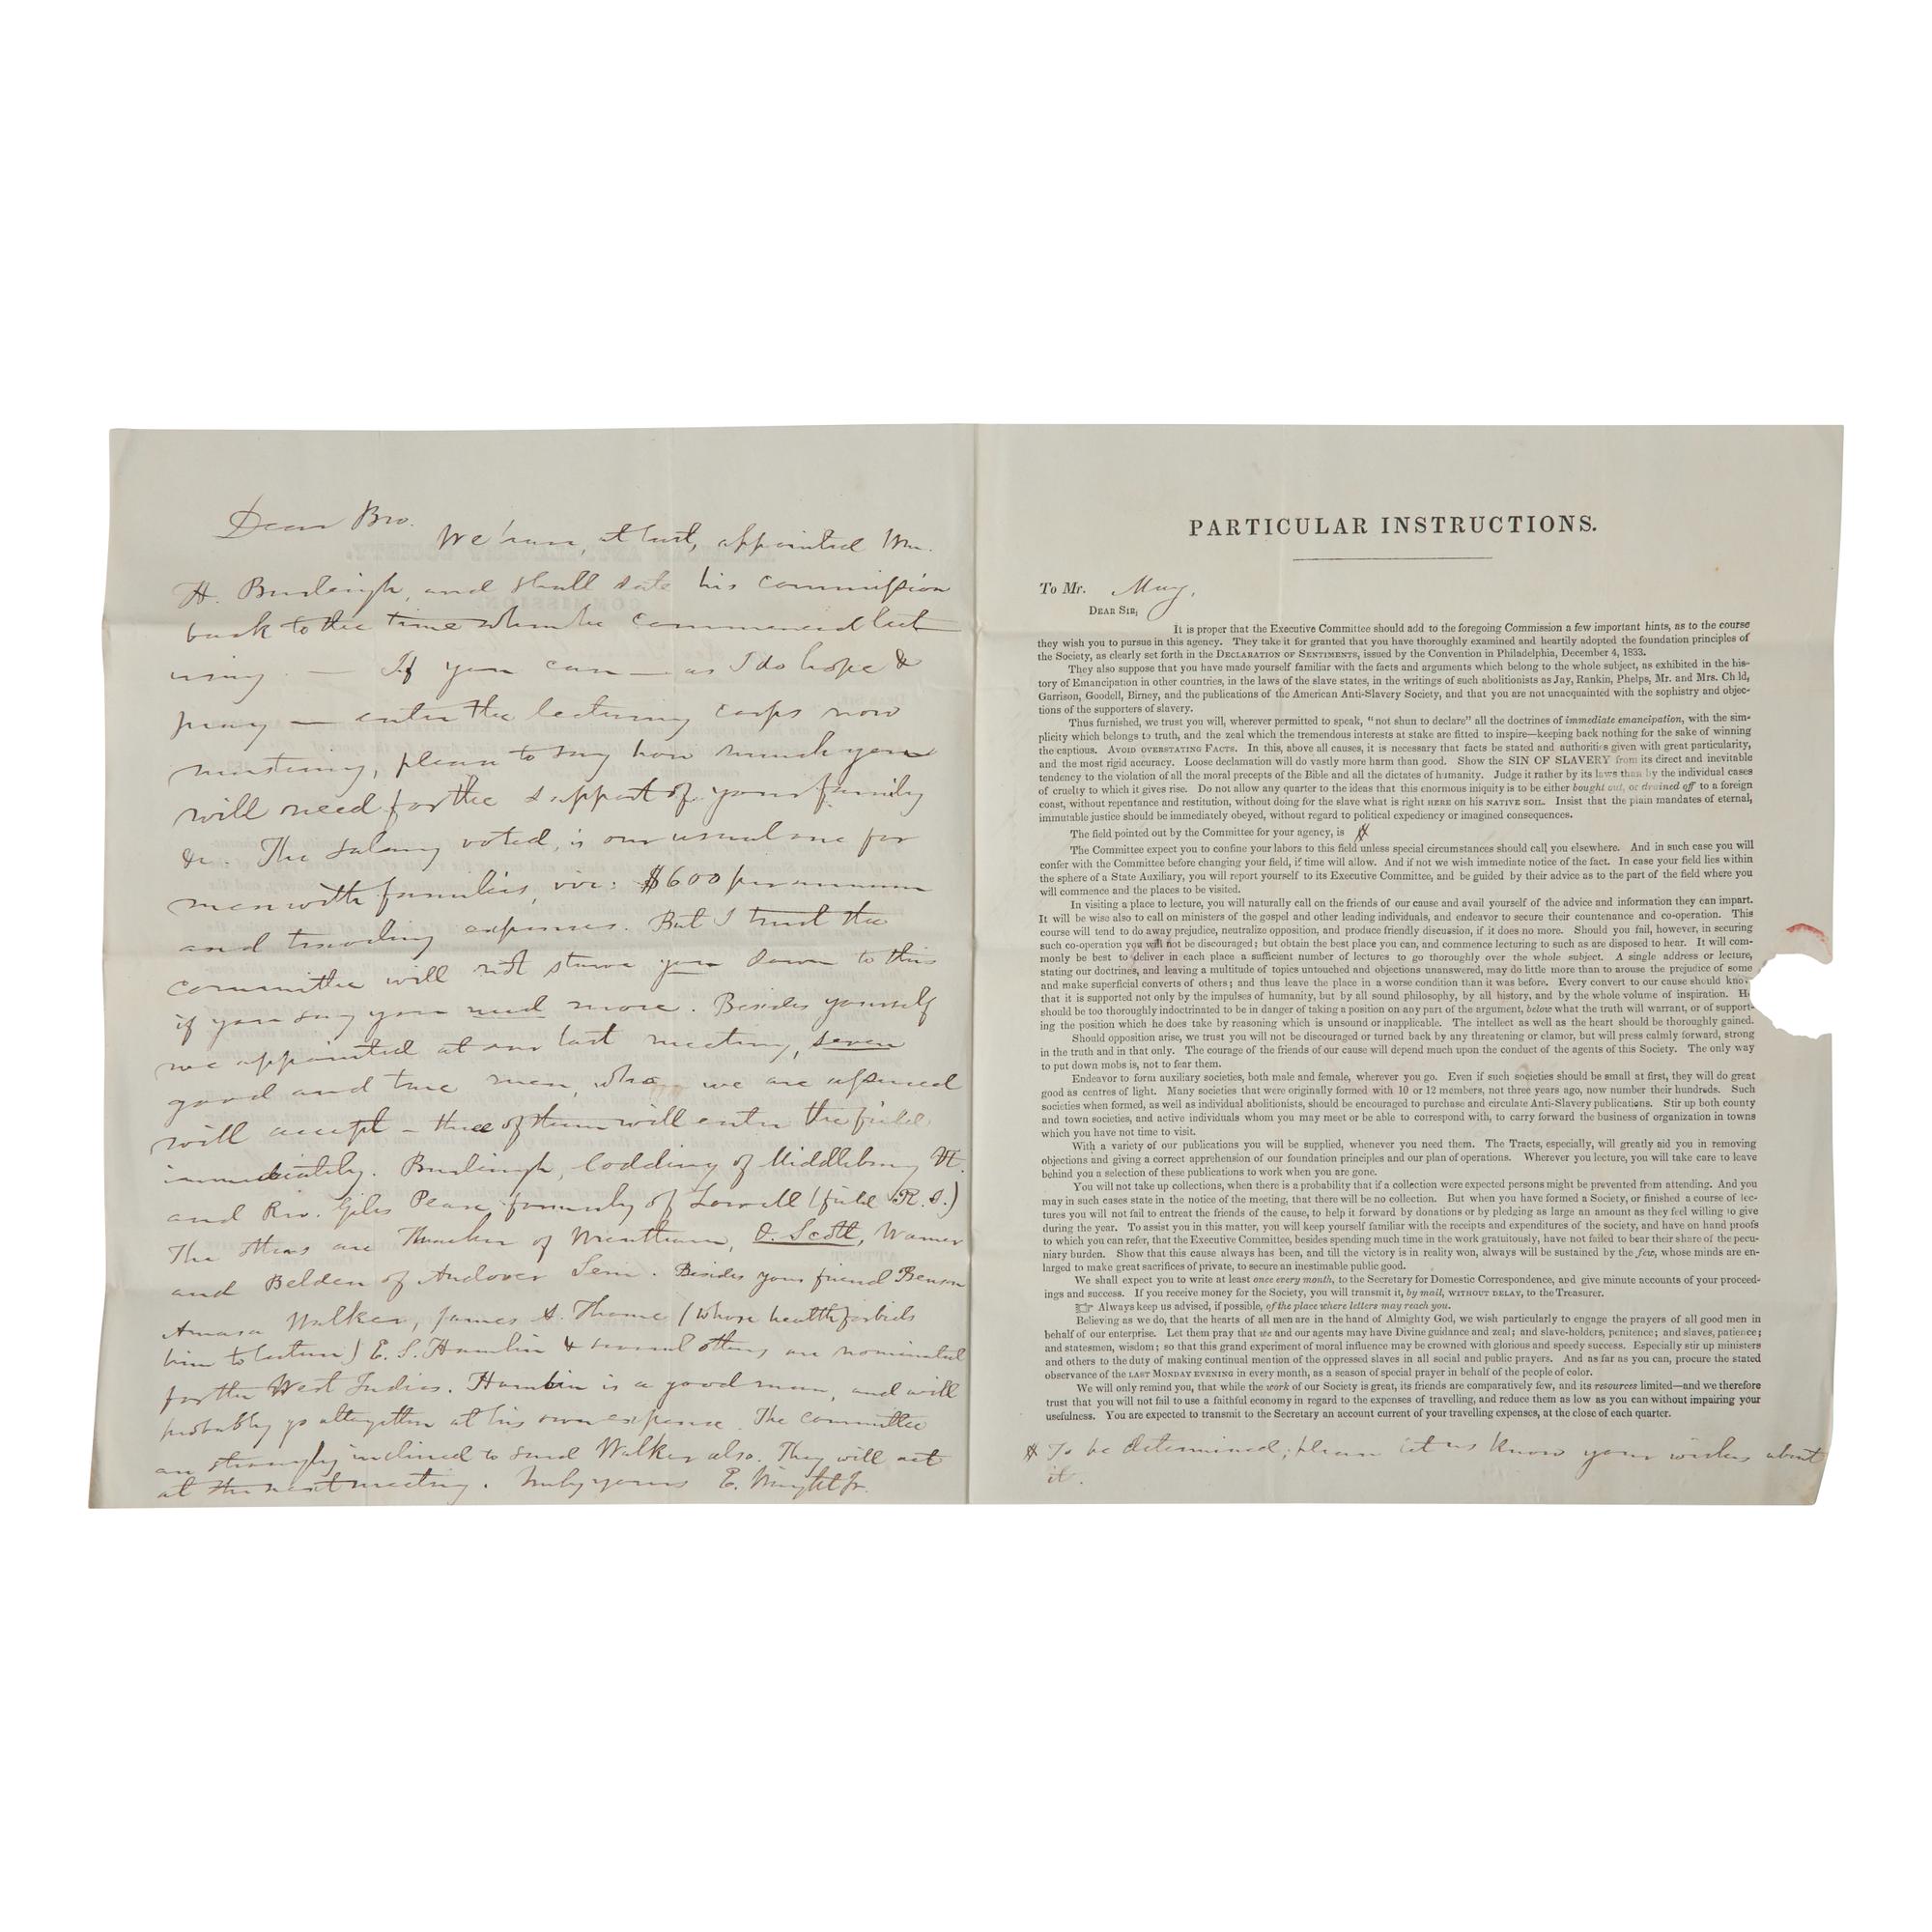 Dear Bro.
We have, at last, appointed Wm.
H. Burleigh, and shall date his commission
back to the time when he commenced lect
uring. — If you can — as I do hope &
pray — enter the lecturing corps now
mustering, please to say how much you
will need for the support of your family
&c. The salary voted, is our usual one for
men with families, viz: $600 per annum
and traveling expenses. But I trust the
committee will not starve you down to this
if you say you need more. Besides yourself
we appointed at our last meeting, seven
good and true men, who we are assured
will accept – three of them will enter the field
immediately. Burleigh, Codding of Middlebury Vt.
and Rev. Giles Pease formerly of Lowell (field R. I.)
The others are Thacher of Wrentham, O. Scott, Warner
and Belden of Andover Sem. Besides your friend Benson
Amasa Walker, James A. Thome (whose health forbids
him to lecture) E. S. Hamlin & several others are nominated
for the West Indies. Hamlin is a good man, and will
probably go altogether at his own expense. The committee
are strongly inclined to send Walker also. They will act
at the next meeting. Truly yours E. Wright Jr.
PARTICULAR INSTRUCTIONS.
To Mr. May,
DEAR SIR,
It is proper that the Executive Committee should add to the foregoing Commission a few important hints, as to the course
they wish you to pursue in this agency. They take it for granted that you have thoroughly examined and heartily adopted the foundation principles of
the Society, as clearly set forth in the DECLARATION OF SENTIMENTS, issued by the Convention in Philadelphia, December 4, 1833.
They also suppose that you have made yourself familiar with the facts and arguments which belong to the whole subject, as exhibited in the his-
tory of Emancipation in other countries, in the laws of the slave states, in the writings of such abolitionists as Jay, Rankin, Phelps, Mr. and Mrs. Child,
Garrison, Goodell, Birney, and the publications of the American Anti-Slavery Society, and that you are not unacquainted with the sophistry and objec-
tions of the supporters of slavery.
Thus furnished, we trust you will, wherever permitted to speak, "not shun to declare" all the doctrines of immediate emancipation, with the sim-
plicity which belongs to truth, and the zeal which the tremendous interests at stake are fitted to inspire—keeping back nothing for the sake of winning
the captious. AVOID OVERSTATING FACTS. In this, above all causes, it is necessary that facts be stated and authorities given with great particularity,
and the most rigid accuracy. Loose declamation will do vastly more harm than good. Show the SIN OF SLAVERY from its direct and inevitable
tendency to the violation of all the moral precepts of the Bible and all the dictates of humanity. Judge it rather by its laws than by the individual cases
of cruelty to which it gives rise. Do not allow any quarter to the ideas that this enormous iniquity is to be either bought out, or drained off to a foreign
coast, without repentance and restitution, without doing for the slave what is right HERE on his NATIVE SOIL. Insist that the plain mandates of eternal,
immutable justice should be immediately obeyed, without regard to political expediency or imagined consequences.
The field pointed out by the Committee for your agency, is
The Committee expect you to confine your labors to this field unless special circumstances should call you elsewhere. And in such case you will
confer with the Committee before changing your field, if time will allow. And if not we wish immediate notice of the fact. In case your field lies within
the sphere of a State Auxiliary, you will report yourself to its Executive Committee, and be guided by their advice as to the part of the field where you
will commence and the places to be visited.
In visiting a place to lecture, you will naturally call on the friends of our cause and avail yourself of the advice and information they can impart.
It will be wise also to call on ministers of the gospel and other leading individuals, and endeavor to secure their countenance and co-operation. This
course will tend to do away prejudice, neutralize opposition, and produce friendly discussion, if it does no more. Should you fail, however, in securing
such co-operation you will not be discouraged; but obtain the best place you can, and commence lecturing to such as are disposed to hear. It will com-
monly be best to deliver in each place a sufficient number of lectures to go thoroughly over the whole subject. A single address or lecture,
stating our doctrines, and leaving a multitude of topics untouched and objections unanswered, may do little more than to arouse the prejudice of some
and make superficial converts of others; and thus leave the place in a worse condition than it was before. Every convert to our cause should know
that it is supported not only by the impulses of humanity, but by all sound philosophy, by all history, and by the whole volume of inspiration. H
should be too thoroughly indoctrinated to be in danger of taking a position on any part of the argument, below what the truth will warrant, or of support-
ing the position which he does take by reasoning which is unsound or inapplicable. The intellect as well as the heart should be thoroughly gained.
Should opposition arise, we trust you will not be discouraged or turned back by any threatening or clamor, but will press calmly forward, strong
in the truth and in that only. The courage of the friends of our cause will depend much upon the conduct of the agents of this Society. The only way
to put down mobs is, not to fear them.
Endeavor to form auxiliary societies, both male and female, wherever you go. Even if such societies should be small at first, they will do great
good as centres of light. Many societies that were originally formed with 10 or 12 members, not three years ago, now number their hundreds. Such
societies when formed, as well as individual abolitionists, should be encouraged to purchase and circulate Anti-Slavery publications. Stir up both county
and town societies, and active individuals whom you may meet or be able to correspond with, to carry forward the business of organization in towns
which you have not time to visit.
With a variety of our publications you will be supplied, whenever you need them. The Tracts, especially, will greatly aid you in removing
objections and giving a correct apprehension of our foundation principles and our plan of operations. Wherever you lecture, you will take care to leave
behind you a selection of these publications to work when you are gone.
You will not take up collections, when there is a probability that if a collection were expected persons might be prevented from attending. And you
may in such cases state in the notice of the meeting, that there will be no collection. But when you have formed a Society, or finished a course of lec-
tures you will not fail to entreat the friends of the cause, to help it forward by donations or by pledging as large an amount as they feel willing to give
during the year. To assist you in this matter, you will keep yourself familiar with the receipts and expenditures of the society, and have on hand proofs
to which you can refer, that the Executive Committee, besides spending much time in the work gratuitously, have not failed to bear their share of the pecu-
niary burden. Show that this cause always has been, and till the victory is in reality won, always will be sustained by the few, whose minds are en-
larged to make great sacrifices of private, to secure an inestimable public good.
We shall expect you to write at least once every month, to the Secretary for Domestic Correspondence, and give minute accounts of your proceed-
ings and success. If you receive money for the Society, you will transmit it, by mail, WITHOUT DELAY, to the Treasurer.
☞ Always keep us advised, if possible, of the place where letters may reach you.
Believing as we do, that the hearts of all men are in the hand of Almighty God, we wish particularly to engage the prayers of all good men in
behalf of our enterprise. Let them pray that we and our agents may have Divine guidance and zeal; and slave-holders, penitence; and slaves, patience;
and statesmen, wisdom; so that this grand experiment of moral influence may be crowned with glorious and speedy success. Especially stir up ministers
and others to the duty of making continual mention of the oppressed slaves in all social and public prayers. And as far as you can, procure the stated
observance of the LAST MONDAY EVENING in every month, as a season of special prayer in behalf of the people of color.
We will only remind you, that while the work of our Society is great, its friends are comparatively few, and its resources limited—and we therefore
trust that you will not fail to use a faithful economy in regard to the expenses of travelling, and reduce them as low as you can without impairing your
usefulness. You are expected to transmit to the Secretary an account current of your travelling expenses, at the close of each quarter.
To be determined; please let us know your wishes about
it.